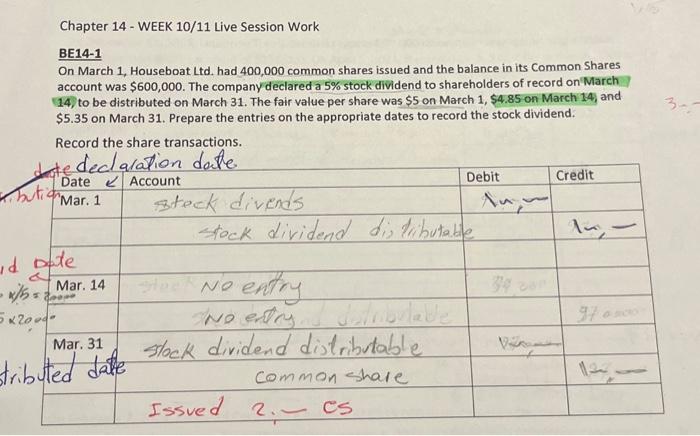 Chapter 14 - WEEK 10/11 Live Session Work
BE14-1
On March 1, Houseboat Ltd. had 400,000 common shares issued and the balance in its Common Shares
account was $600,000. The company declared a 5% stock dividend to shareholders of record on March
14, to be distributed on March 31. The fair value per share was $5 on March 1, $4.85 on March 14, and
$5.35 on March 31. Prepare the entries on the appropriate dates to record the stock dividend.
Record the share transactions.
date declaration date
Date Account Debit Credit
Mar. 1 stock divends
stock dividend distributable
Date
Mar. 14 No entry
No entry
Mar. 31 stock dividend distributable
tributed date common share
Issued 2.– CS